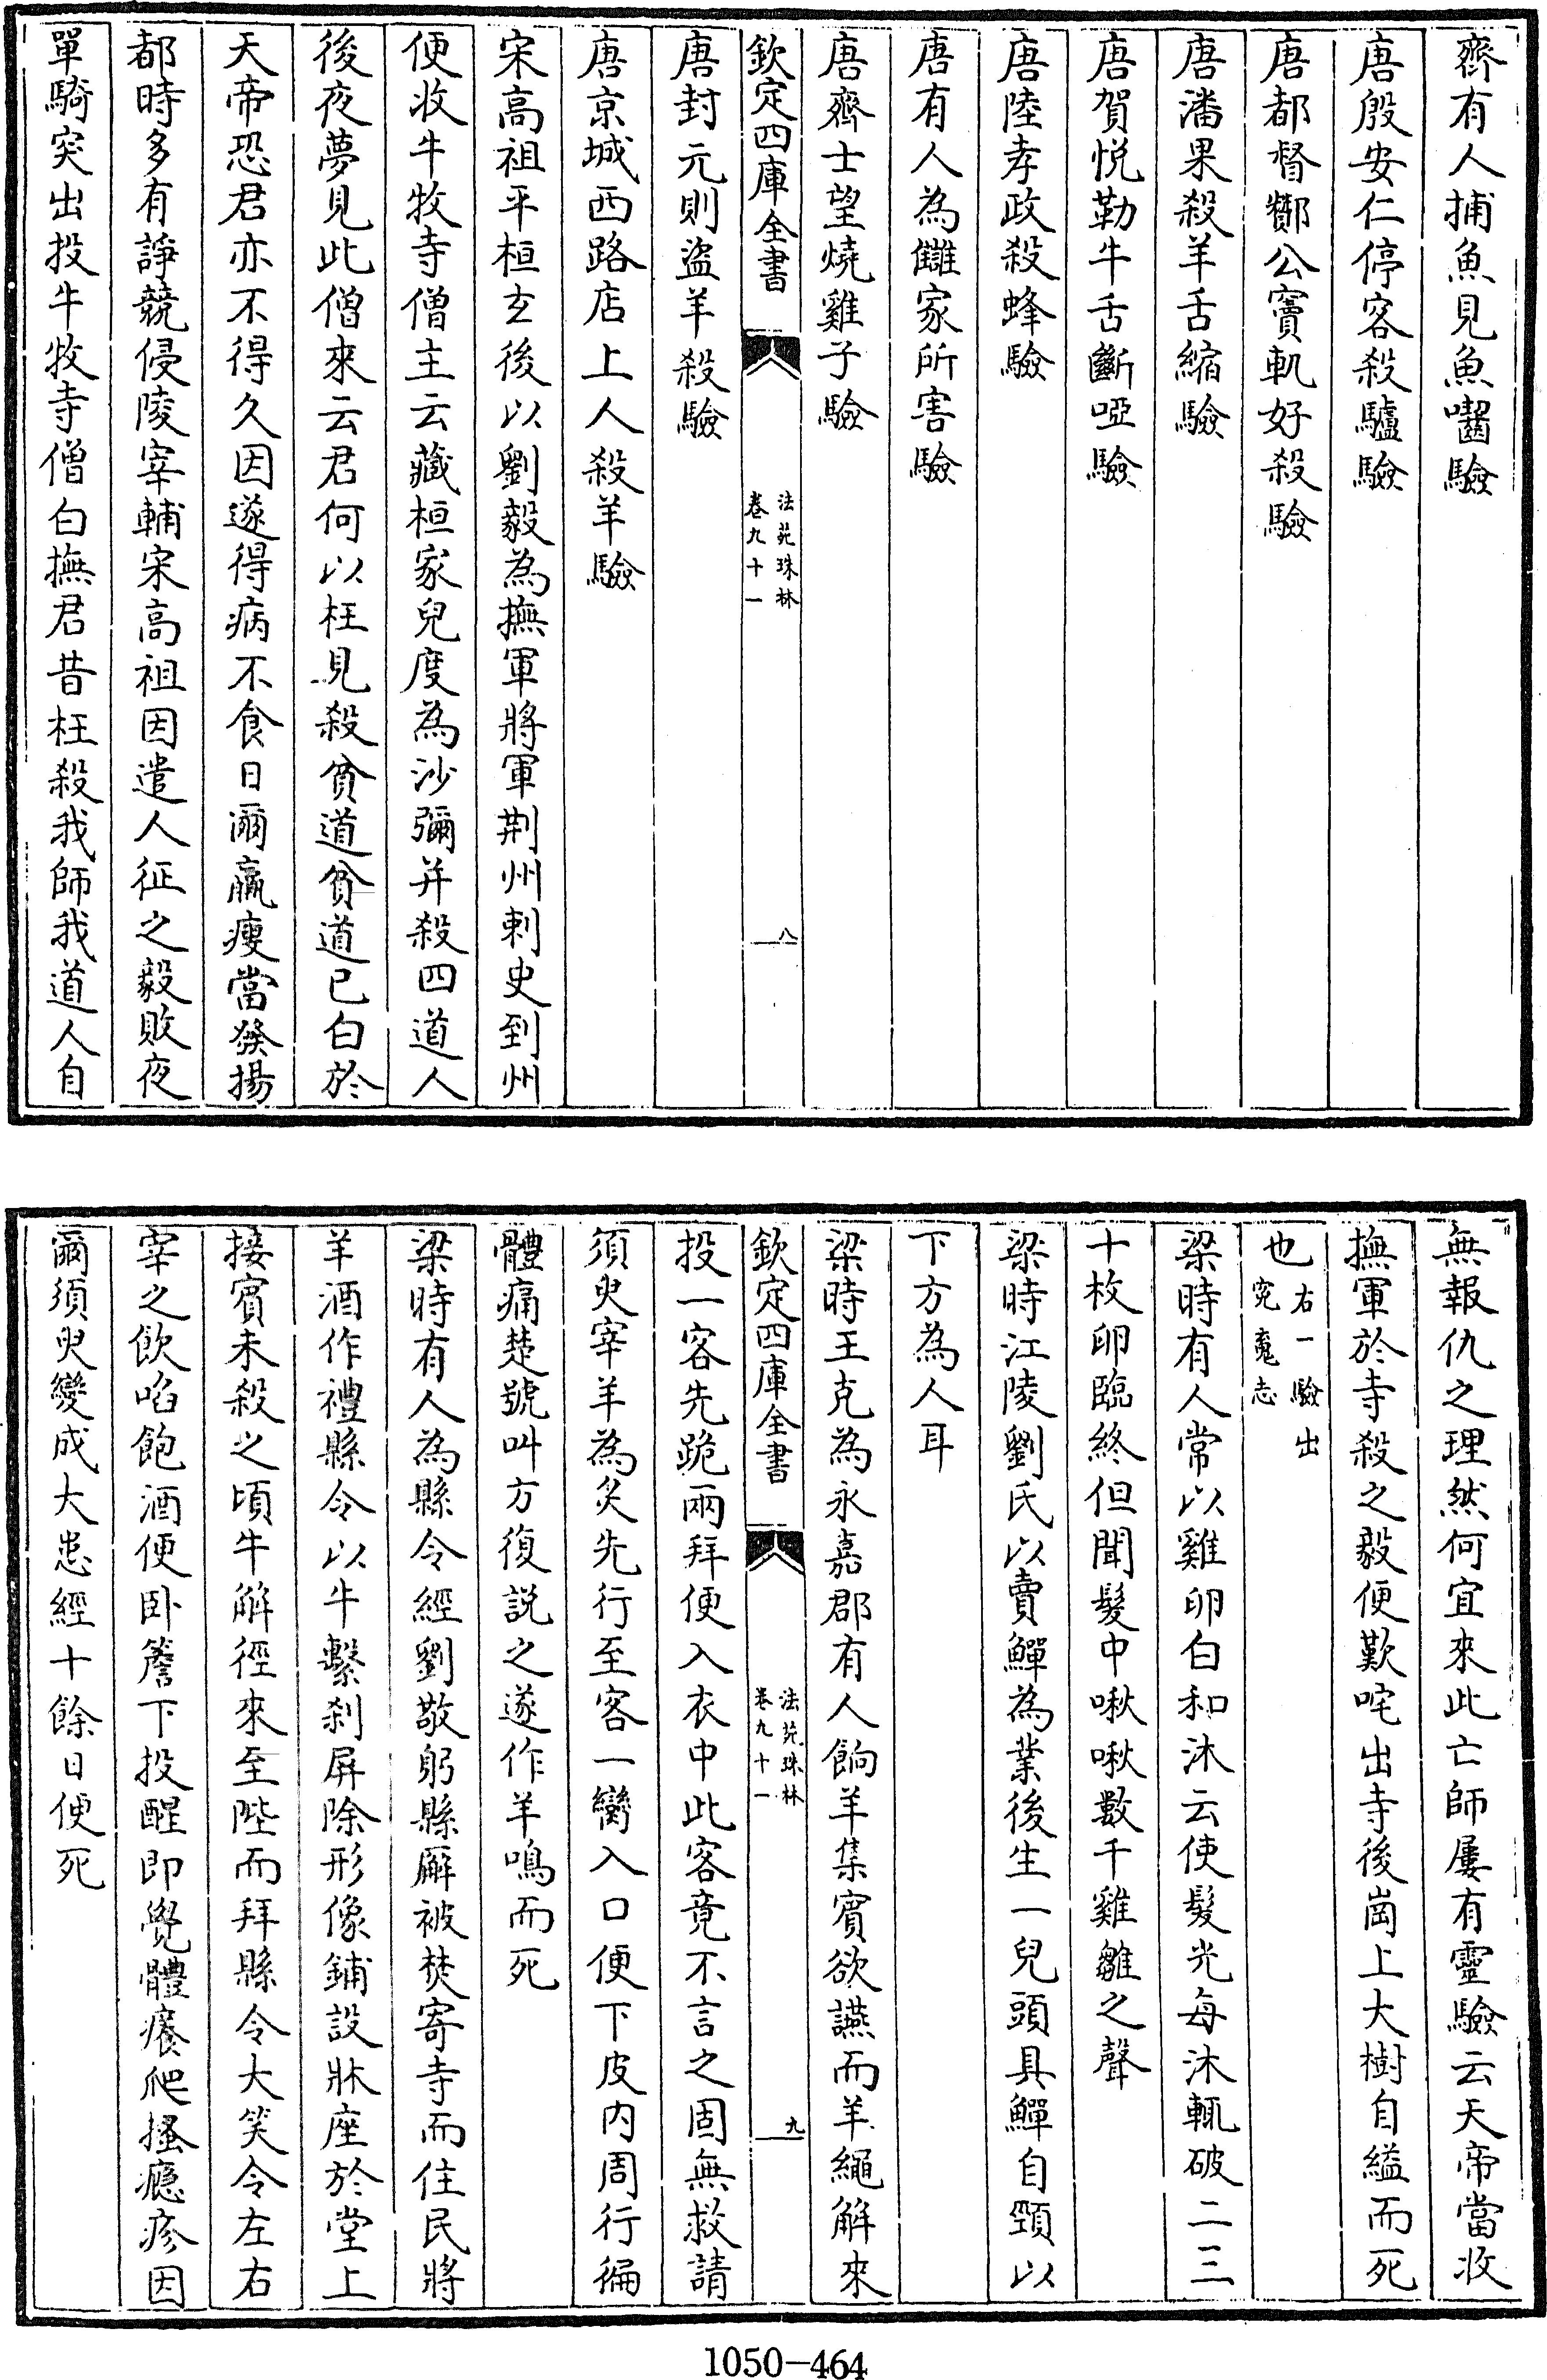 齊有人捕魚見魚囓驗
唐殷安仁停客殺驢驗
唐都督酇公竇軌好殺驗
唐潘果殺羊舌縮驗
唐賀悦勒牛舌斷啞驗
唐陸孝政殺蜂驗
唐有人為讎家所害驗
唐齊士望燒雞子驗
欽定四庫全書
法苑珠林
卷九十一
八
唐封元則盜羊殺驗
唐京城西路店上人殺羊驗
宋高祖平桓玄後以劉毅為撫軍將軍荆州刺史到州
便收牛牧寺僧主云藏桓家兒度為沙彌并殺四道人
後夜夢見此僧來云君何以枉見殺貧道貧道已白於
天帝恐君亦不得久因遂得病不食日爾羸瘦當發揚
都時多有諍競侵陵宰輔宋高祖因遣人征之毅敗夜
單騎突出投牛牧寺僧白撫君昔枉殺我師我道人自
無報仇之理然何宜來此亡師屢有靈驗云天帝當收
撫軍於寺殺之毅便歎咤出寺後崗上大樹自縊而死
也右一驗出
寃魂志
梁時有人常以雞卵白和沐云使髮光每沐輒破二三
十枚卵臨終但聞髮中啾啾數千雞雛之聲
梁時江陵劉氏以賣鱓為業後生一兒頭具鱓自頸以
下方為人耳
梁時王克為永嘉郡有人餉羊集賓欲讌而羊繩解來
欽定四庫全書
法苑珠林
卷九十一
九
投一客先跪兩拜便入衣中此客竟不言之固無救請
須臾宰羊為炙先行至客一臠入口便下皮内周行徧
體痛楚號叫方復説之遂作羊鳴而死
梁時有人為縣令經劉敬躬縣廨被焚寄寺而住民將
羊酒作禮縣令以牛繫刹屏除形像鋪設牀座於堂上
接賓未殺之頃牛解徑來至陛而拜縣令大笑令左右
宰之飲啗飽酒便卧簷下投醒即覺體癢爬搔癮疹因
爾須臾變成大患經十餘日便死
1050-464